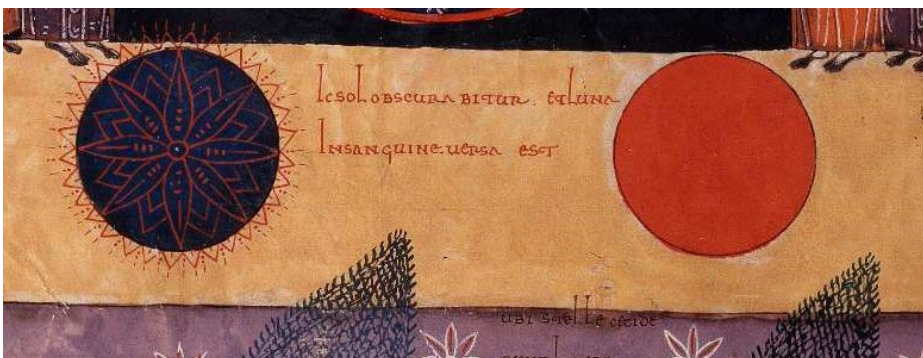 Ic sol obscurabitur. et luna
In sanguine versa est
ubi stelle cecide